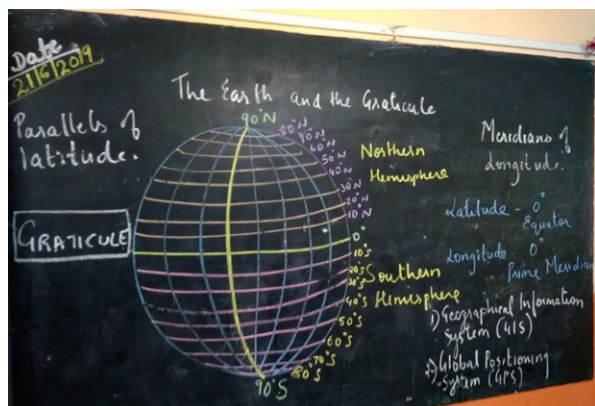 Date
21/6/2019
The Earth and the Graticule
Parallels of
latitude.
GRATICULE
90°N
80°N
70°N
60°N
50°N
40°N
30°N
20°N
10°N
0°
10°S
20°S
30°S
40°S
50°S
60°S
70°S
80°S
90°S
Northern
Hemisphere
Southern
Hemisphere
Meridians of
Longitude.
Latitude - 0°
Equator
Longitude - 0°
Prime Meridian
1) Geographical Information
System (GIS)
2) Global Positioning
System (GPS)